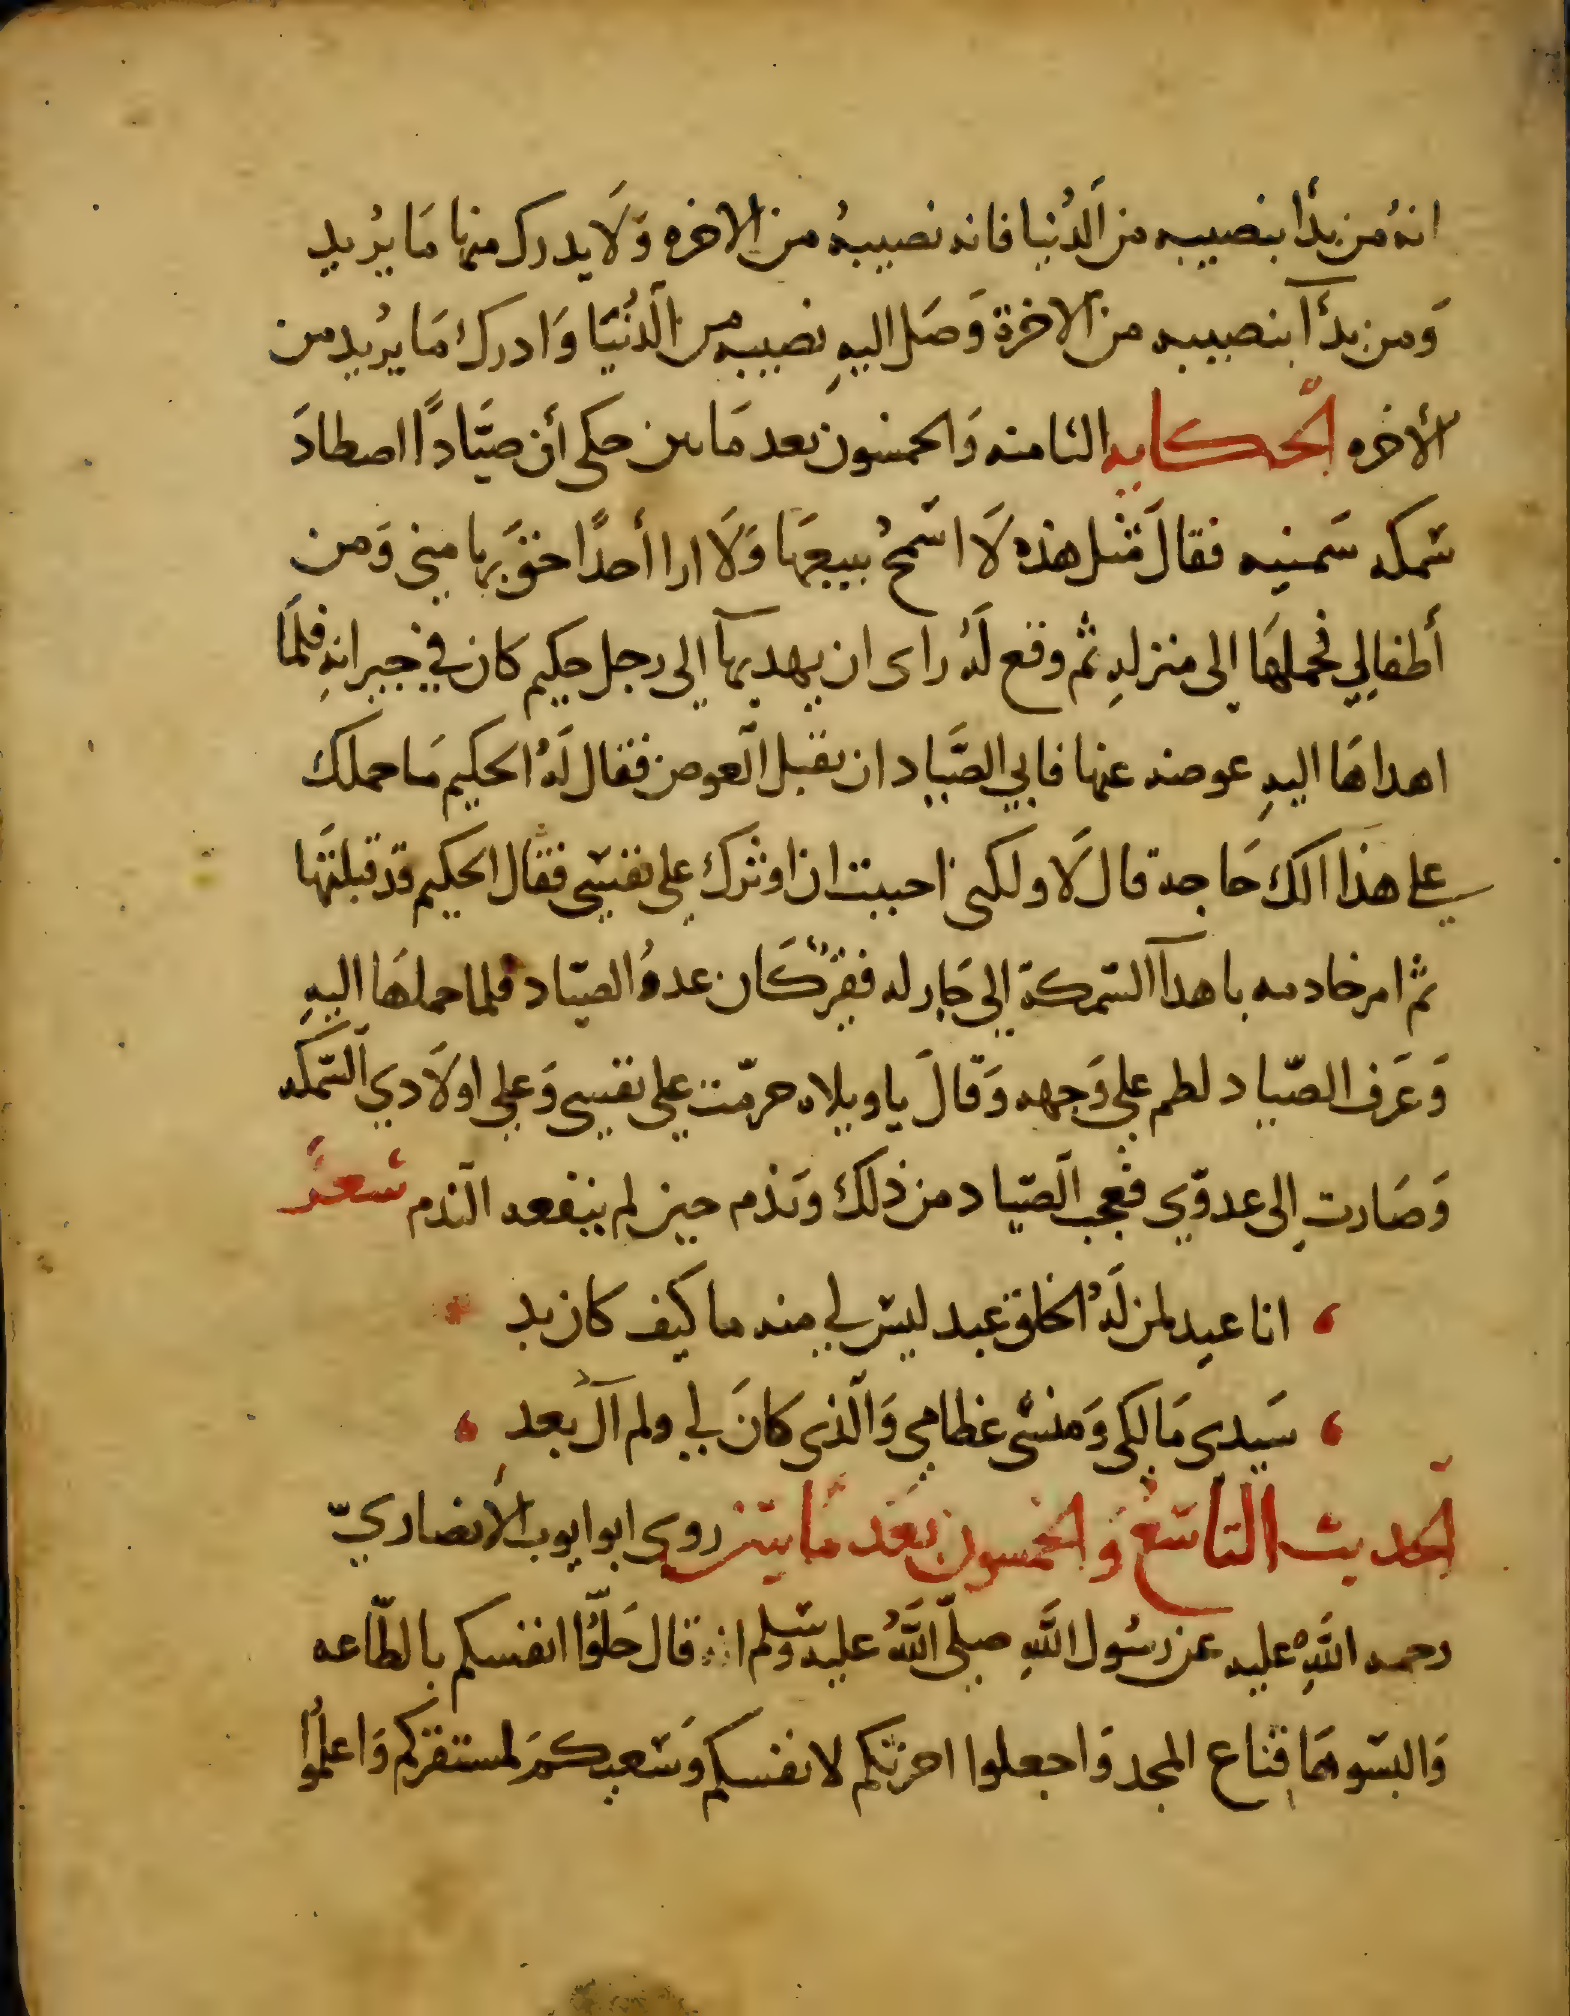 انهُ من بدأ بنصيبه من الدُنيا فاته نصيبهُ من الاخره وَلَا يدرك منها مَا يُريد
وَمن بدأ بنصيبه من الآخرة وَصَل اليهِ نصيبه من الدُنيَا وَادرك مَا يريد من
الأخره الحكايه الثامنه وَالخمسون بعد مَايتين حكى أن صيَّادًا اصطادَ
سمكه سَمينه فقالَ مثل هذه لَا اسْمحُ ببيعهَا وَلَا ارا أحدًا احق بها مني وَمن
أطفالي فحملهَا إلى منزلهِ ثم وقع لهُ راى ان يهديها إلى رجل حكيم كان في جيرانهِ فلمَّا
اهداهَا اليهِ عوضه عنها فابي الصَّياد ان يقبل العوض فقال لهُ الحكيم مَا حملك
على هذَا الك حَاجة قال لَا ولكنى احببت ان اوثرك على نفسي فقال الحكيم قد قبلتهَا
ثم امر خادمه باهدآ السّمكة إلى جَار له فقير كَان عدوُ الصيّاد فلما حملهَا اليهِ
وَعَرف الصّياد لطم على وَجهه وَقالَ ياويلاه حرمّت على نفسي وَعلى اولَادي السّمكه
وَصَارت إلى عدوّي فعجب الصّياد من ذلك وَندم حين لم ينفعه الندم شعرٌ
انا عبد لمن لَهُ الخلق عبد ليس لي منه ما كيف كان بد
سَيدى مَالكى وَمنشى عظامي وَالّذى كانَ لي ولم آلُ بعد
الحديث التاسع وَالخمسون بَعد مَايتين روى ابو ايوب الأنصاريّ
رحمه اللهِ عليه عن رسُول اللهِ صلّى اللهُ عليه وسلم ان قال حَلّوُا انفسكم بالطّاعه
وَالبسوهَا قناع المجد وَاجعلوا اخرتكم لانفسكم وَسَعيكمَ لمستقركم وَاعلمُوا